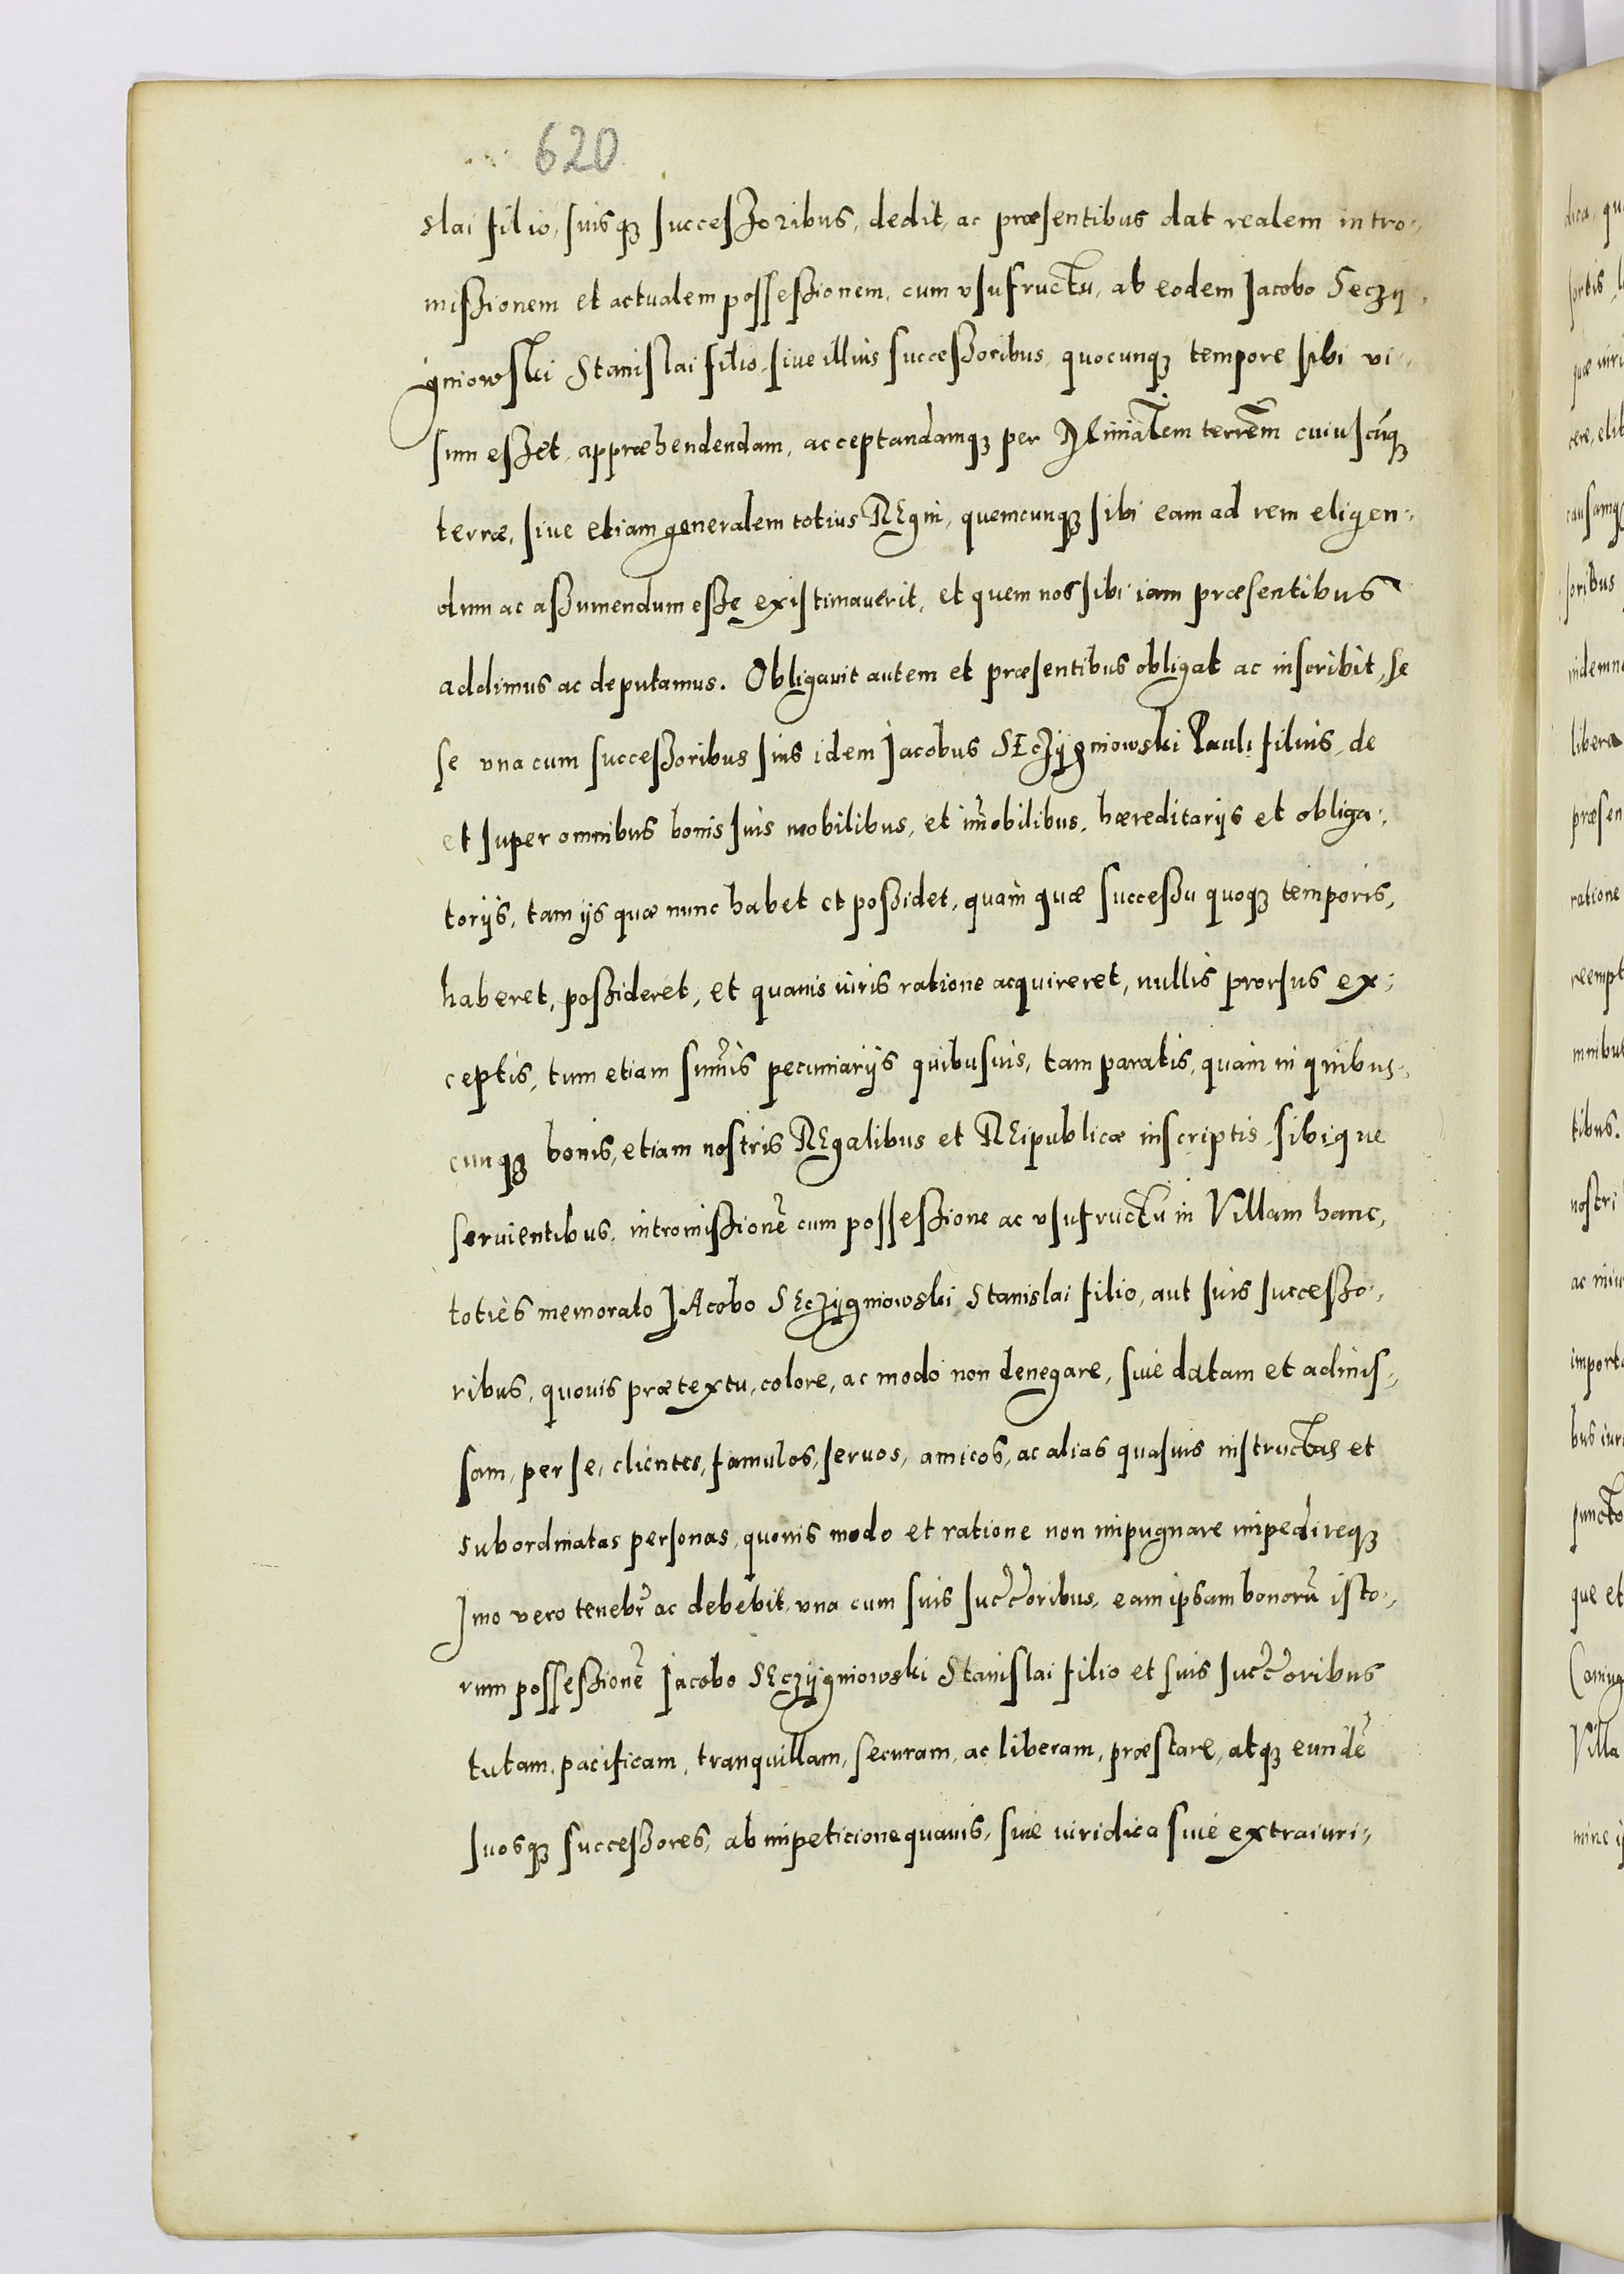 620
slai filio, suisq3 successoribus, dedit, ac præsentibus dat realem intro-
missionem et actualem possessionem, cum vsufructu, ab eodem Jacobo Seczy-
gniowski Stanislai filio, siue illius successoribus, quocunq3 tempore sibi vi-
sum esset, appræhendendam, acceptandamq3 per Mīnīālem terrēm cuiuscūq3
terræ, siue etiam generalem totius REgni, quemcunq3 sibi eam ad rem eligen-
dum ac assumendum esse existimauerit, et quem nos sibi iam præsentibus
addimus ac deputamus. Obligauit autem et præsentibus obligat ac inscribit, se
se vna cum successoribus suis idem Jacobus SEczÿgniowski Pauli filius, de
et super omnibus bonis suis mobilibus, et im̄obilibus, hæreditarijs et obliga-
torijs, tam ijs quæ nunc habet et possidet, quam quæ successu quoq3 temporis,
haberet, possideret, et quauis iuris ratione acquireret, nullis prorsus ex-
ceptis, tum etiam sum̄is pecuniarijs quibusuis, tam paratis, quam in quibus-
cunq3 bonis, etiam nostris REgalibus et REipublicæ inscriptis, sibique
seruientibus, intromissionē cum possessione ac vsufructu in Villam hanc,
toties memorato JAcobo SEczÿgniowski Stanislai filio, aut suis successo-
ribus, quouis prætextu, colore, ac modo non denegare, siue datam et admis-
sam, per se, clientes, famulos, seruos, amicos, ac alias quasuis instructas et
subordinatas personas, quouis modo et ratione non impugnare impedireq3
Jmo vero tenebr̄ ac debebit, vna cum suis succ̄oribus, eam ipsam bonorū isto-
rum possessionē Jacobo SEczÿgniowski Stanislai filio et suis succ̄oribus
tutam, pacificam, tranquillam, securam, ac liberam, præstare, atq3 eundē
suosq3 successores, ab impeticione quauis, siue iuridica siue extraiuri-